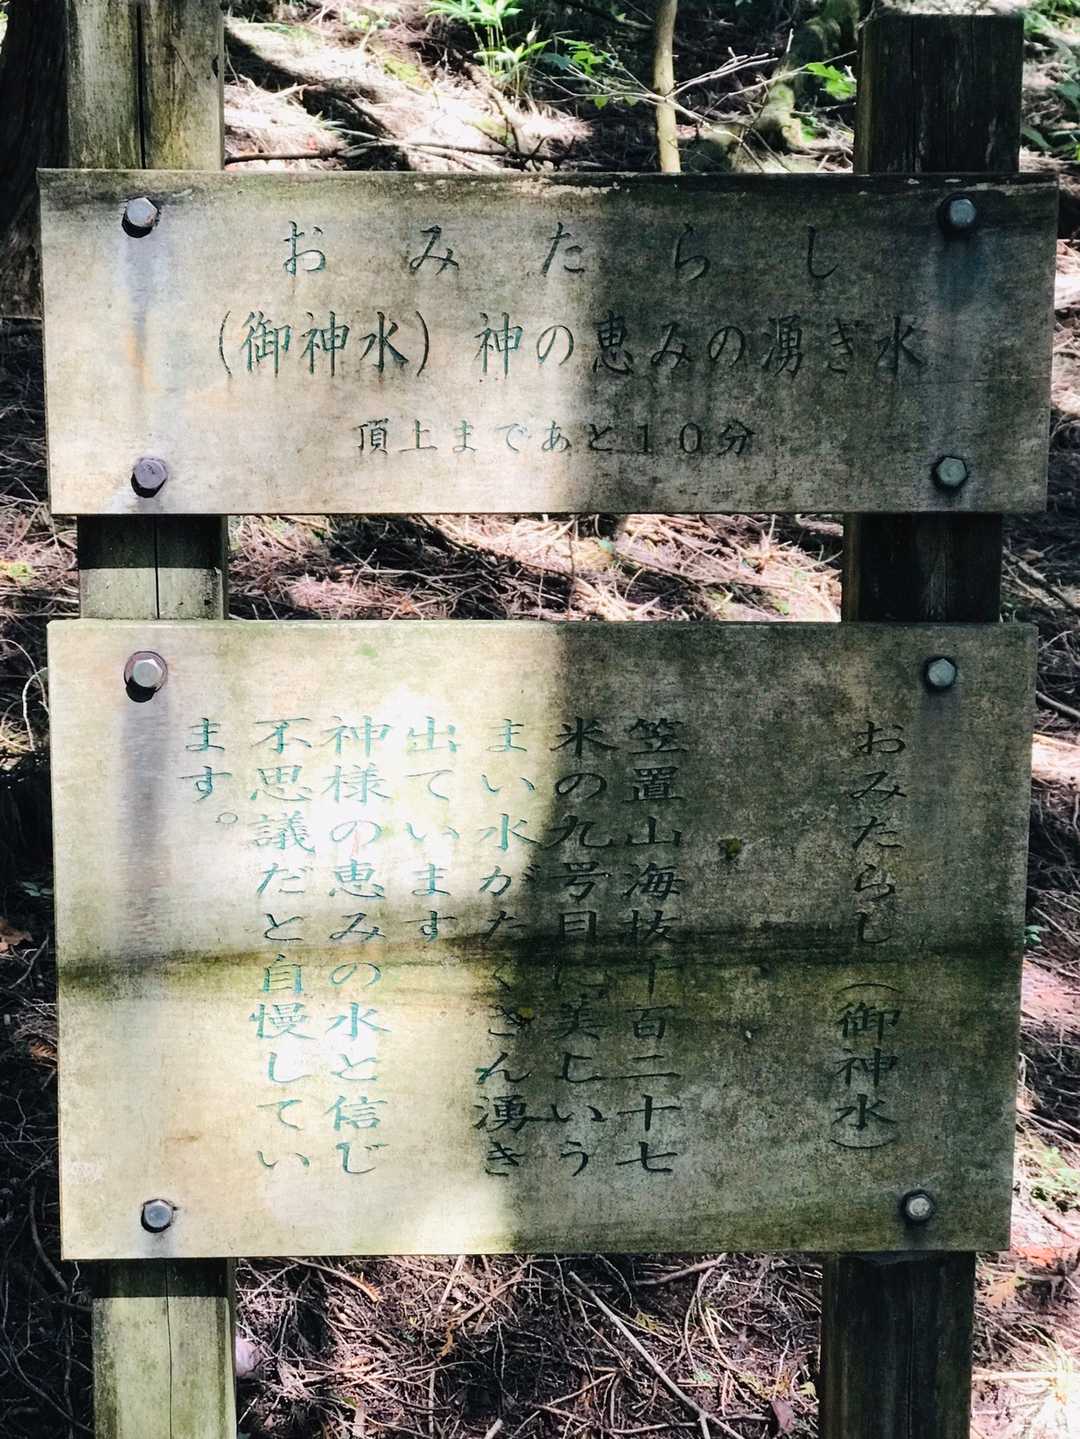 おみたらし
(御神水) 神の恵みの湧き水
頂上まであと10分
おみたらし(御神水)
笠置山海抜千百二十七
米の九号目に美しいう
まい水がたくさん湧き
出ています
神様の恵みの水と信じ
不思議だと自慢してい
ます。